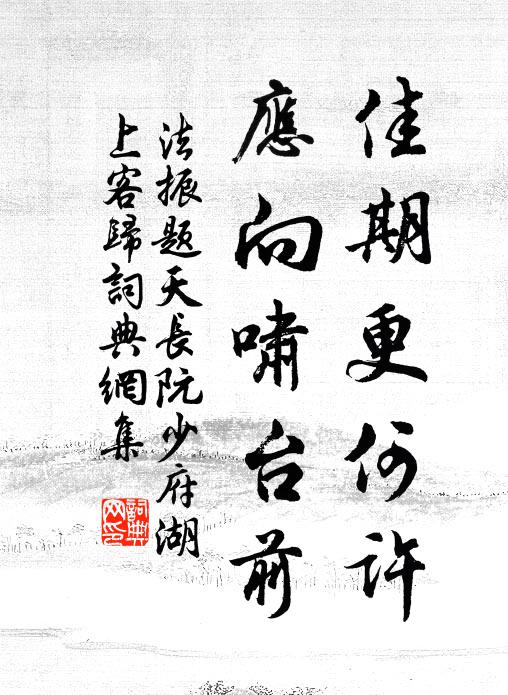 佳期更何许
應向嘯台前
法振題天長阮少府湖
上客歸詞典網集
詞典
网印